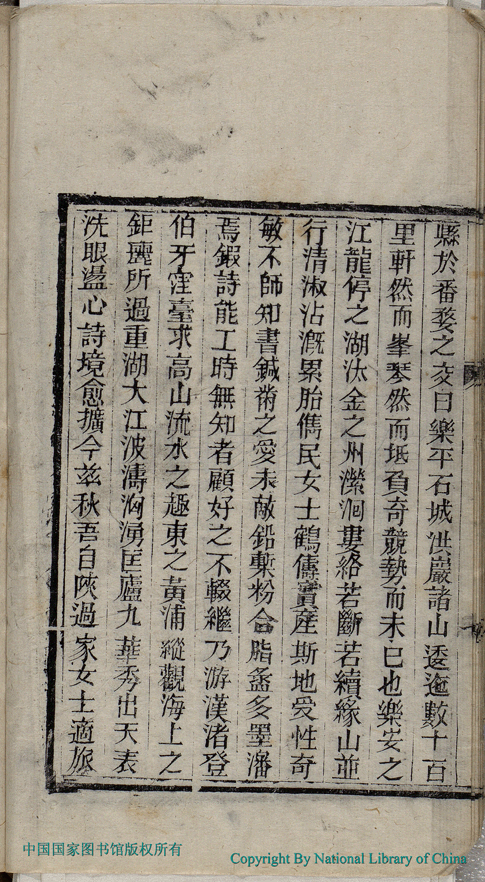 縣於番婺之交曰樂平石城洪巖諸山逶迤數十百
里軒然而峯琴然而坻負奇競勢而未已也樂安之
江龍停之湖汰金之州瀠洄婁絡若斷若續緣山並
行清淑沾漑累胎儁民女士鶴儔實產斯地愛性奇
敏不師知書鍼黹之愛未敵鉛槧粉合脂奩多墨瀋
焉鍜詩能工時無知者顧好之不輟繼乃游漢渚登
伯牙窪臺求高山流水之趣東之黃浦縱觀海上之
鉅麗所過重湖大江波濤洶湧匡廬九華秀出天表
洗眼盪心詩境愈擴今玆秋吾自陝過家女士適旅
中国国家图书馆版权所有
Copyright By National Library of China